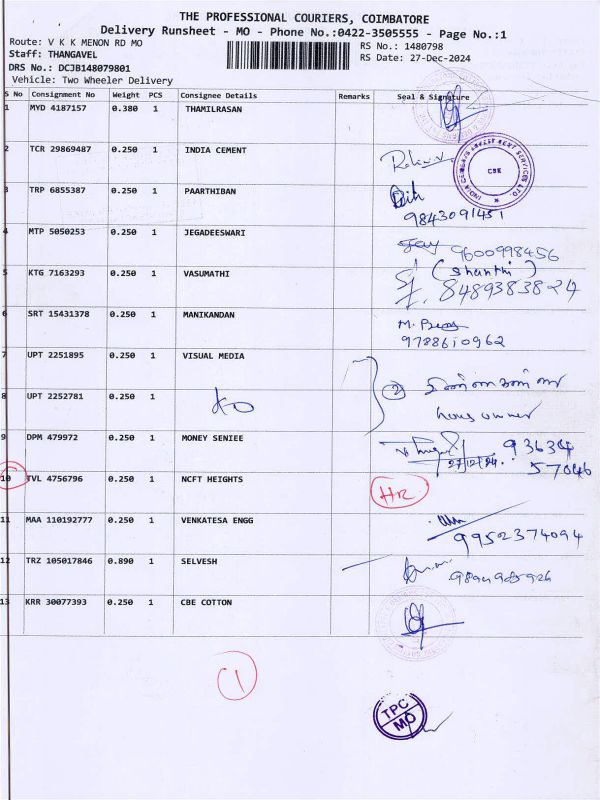 THE PROFESSIONAL COURIERS, COIMBATORE
Delivery Runsheet - MO - Phone No.:0422-3505555 - Page No.:1
Route: V K K MENON RD MO
RS No.: 1480798
Staff: THANGAVEL
RS Date: 27-Dec-2024
DRS No.: DCJB148079801
Vehicle: Two Wheeler Delivery
S No Consignment No Weight PCS Consignee Details Remarks Seal & Signature
1 MYD 4187157 0.380 1 THAMILRASAN
2 TCR 29869487 0.250 1 INDIA CEMENT
CBE
3 TRP 6855387 0.250 1 PAARTHIBAN
9843091451
4 MTP 5050253 0.250 1 JEGADEESWARI
9600998456
5 KTG 7163293 0.250 1 VASUMATHI
(Shanthi)
8489383824
6 SRT 15431378 0.250 1 MANIKANDAN
9788610962
7 UPT 2251895 0.250 1 VISUAL MEDIA
2
8 UPT 2252781 0.250 1
9 DPM 479972 0.250 1 MONEY SENIEE
27/12/24. 93634
57046
10 TVL 4756796 0.250 1 NCFT HEIGHTS
11 MAA 110192777 0.250 1 VENKATESA ENGG
9952374094
12 TRZ 105017846 0.890 1 SELVESH
13 KRR 30077393 0.250 1 CBE COTTON
TPC
MO